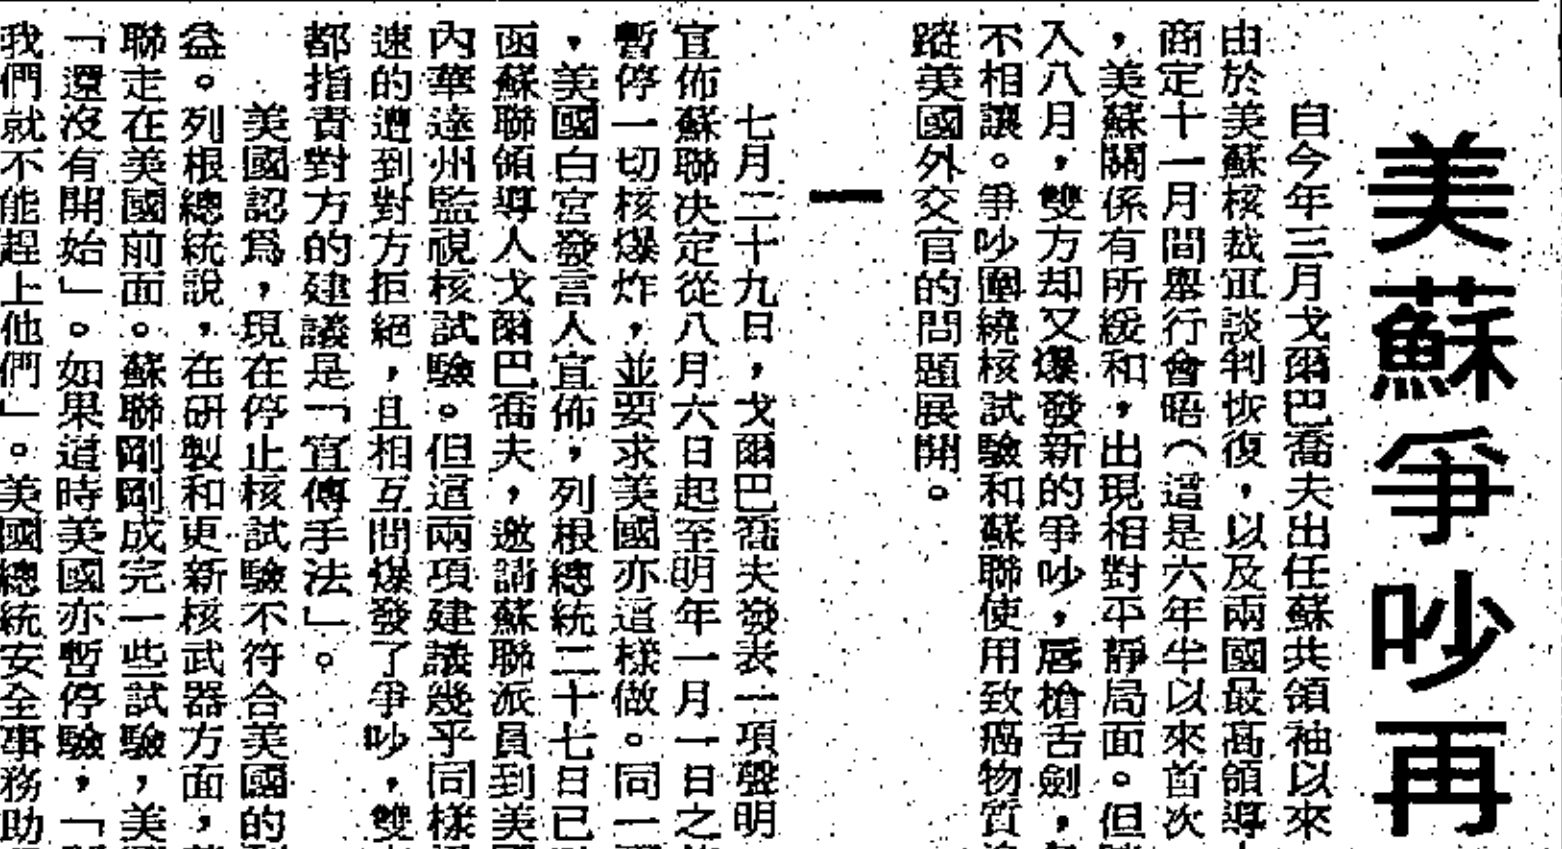 美蘇爭吵再
自今年三月戈爾巴喬夫出任蘇共領袖以來
由於美蘇核裁軍談判恢復，以及兩國最高領導
商定十一月間舉行會晤（這是六年半以來首次
，美蘇關係有所緩和，出現相對平靜局面。但
入八月，雙方却又爆發新的爭吵，唇槍舌劍，
不相讓。爭吵圍繞核試驗和蘇聯使用致癌物質
蹤美國外交官的問題展開。
一
七月二十九日，戈爾巴喬夫發表一項聲明
宣佈蘇聯决定從八月六日起至明年一月一日之
暫停一切核爆炸，並要求美國亦這樣做。同一
，美國白宮發言人宣佈，列根總統二十七日已
函蘇聯領導人戈爾巴喬夫，邀請蘇聯派員到美
內華達州監視核試驗。但這兩項建議幾乎同樣
速的遭到對方拒絕，且相互間爆發了爭吵，雙
都指責對方的建議是「宣傳手法」。
美國認爲，現在停止核試驗不符合美國的
益。列根總統說，在研製和更新核武器方面，
聯走在美國前面。蘇聯剛剛成完一些試驗，美
「還沒有開始」。如果這時美國亦暫停驗，「
我們就不能趕上他們」。美國總統安全事務助